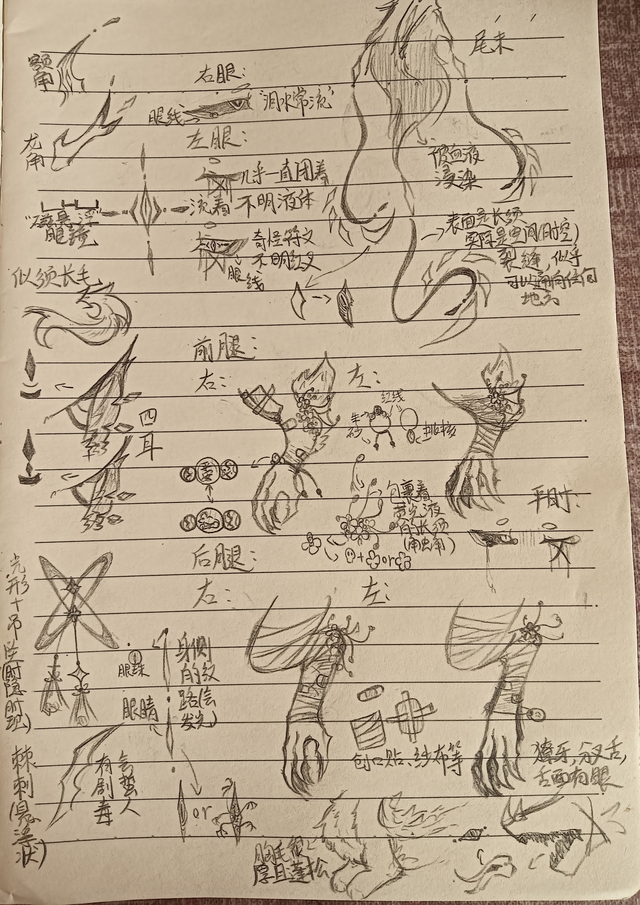 额角
尾末
右眼：
眼线
"泪水常流"
龙角
左眼：
几乎一直闭着
流着
不明液体
被血液
浸染
"磁悬浮"
眼镜
奇怪符文
不明红叉
眼线
表面是长须
实际是空间(时空)
裂缝，似乎
可以通向任何
地方
似须长毛
前腿：
右：
左：
四
耳
红线
朱
砂
桃核
包裹着
荧光液
的长须
(触角)
平时：
or
后腿：
右：
左：
光形十吊坠(时隐时现)
眼珠
眼睛
身侧
的纹
路会
发光
创口贴、纱布等
獠牙，分叉舌，
舌面有眼
棘刺(悬浮状)
有剧毒
会蜇人
or
胸毛
厚且蓬松